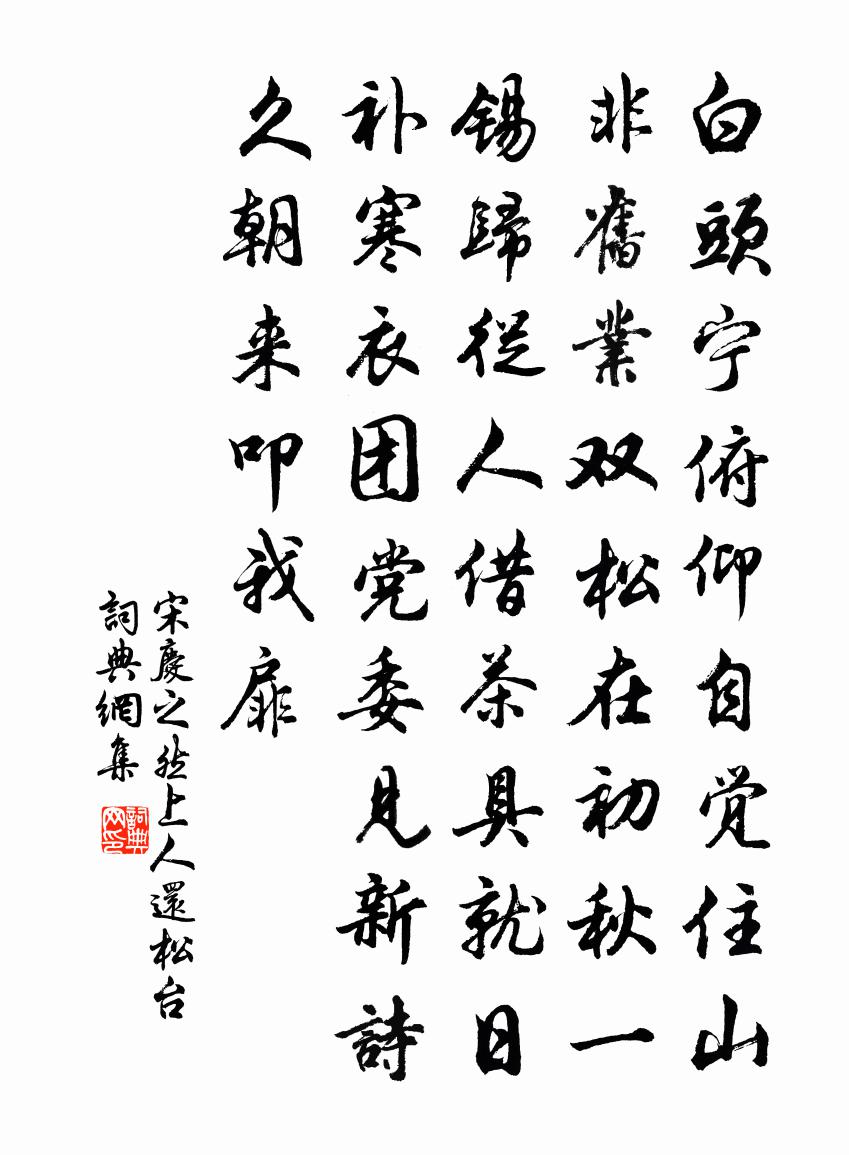 白頭宁俯仰自觉住山
非舊業双松在初秋一
锡歸從人借茶具就日
补寒衣团党委见新詩
久朝来叩我扉
宋慶之然上人還松台
詞典網集
詞典网印